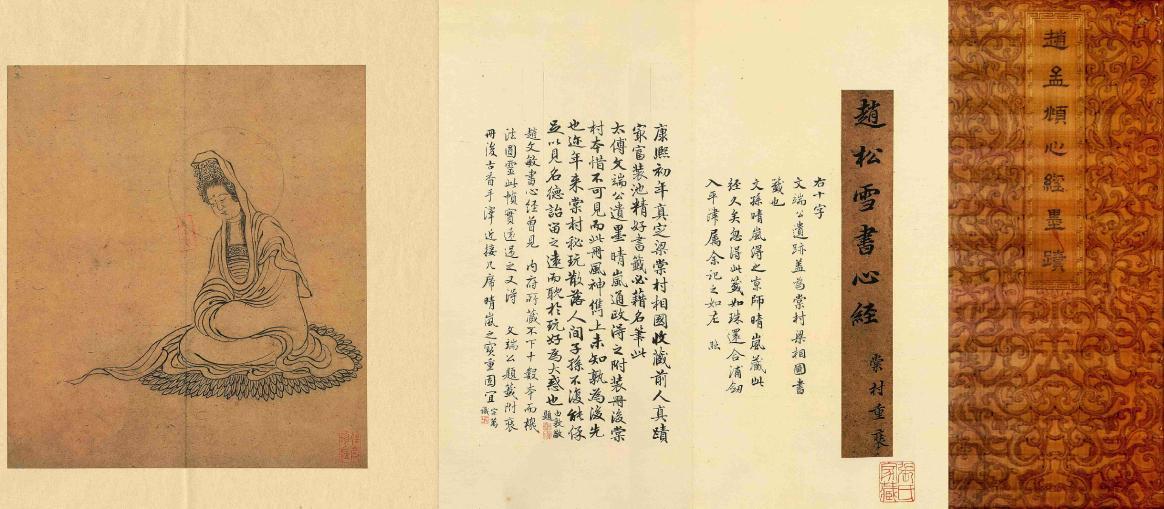 趙孟頫心經墨蹟
趙松雪書心經
棠村重裝
張氏家藏
右十字
文端公遺跡蓋為棠村梁相國書
籤也
文孫晴嵐得之京師晴嵐藏此
經久矣忽得此籤如珠還合浦劍
入平津屬余記之如左 照
康熙初年真定梁棠村相國收藏前人真蹟
家富裝池精好書籤必藉名筆此
太傅文端公遺墨晴嵐通政得之附裝冊後棠
村本惜不可見而此冊風神雋上未知孰為後先
也近年來棠村秘玩散落人間子孫不復能保
足以見名德詒留之遠而耽於玩好為大惑也
由敦敬題
趙文敏書心經曾見 內府所藏不下十數本而機
法圓靈此幀實遠過之又得 文端公題籤附裝
冊後古香手澤近接几席晴嵐之寶重固宜
宗萬識